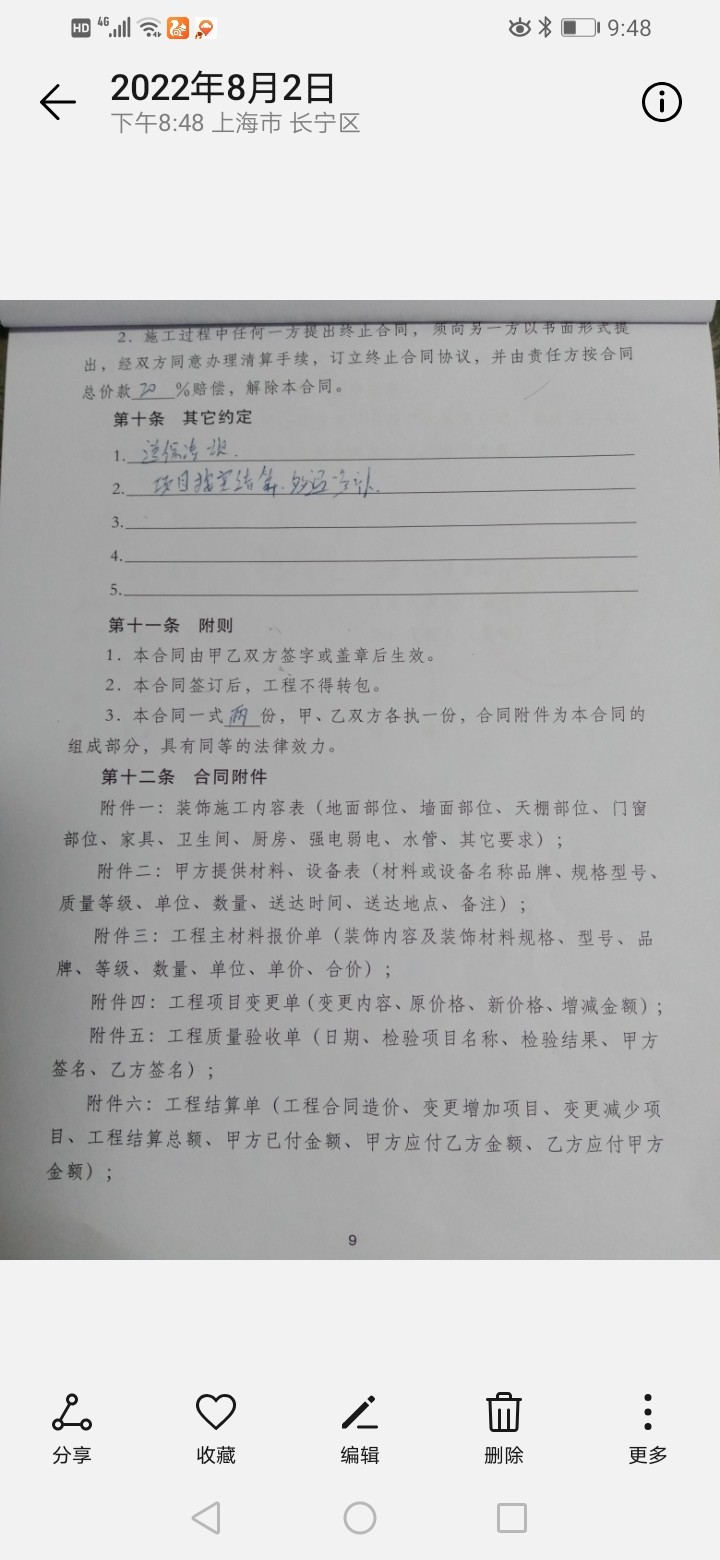 HD 4G 9:48
2022年8月2日
下午8:48 上海市 长宁区
2. 施工过程中任何一方提出终止合同，须向另一方以书面形式提
出，经双方同意办理清算手续，订立终止合同协议，并由责任方按合同
总价款20%赔偿，解除本合同。
第十条 其它约定
1. 送保洁
2. 项目按实结算.
3.
4.
5.
第十一条 附则
1. 本合同由甲乙双方签字或盖章后生效。
2. 本合同签订后，工程不得转包。
3. 本合同一式两份，甲、乙双方各执一份，合同附件为本合同的
组成部分，具有同等的法律效力。
第十二条 合同附件
附件一：装饰施工内容表（地面部位、墙面部位、天棚部位、门窗
部位、家具、卫生间、厨房、强电弱电、水管、其它要求）；
附件二：甲方提供材料、设备表（材料或设备名称品牌、规格型号、
质量等级、单位、数量、送达时间、送达地点、备注）；
附件三：工程主材料报价单（装饰内容及装饰材料规格、型号、品
牌、等级、数量、单位、单价、合价）；
附件四：工程项目变更单（变更内容、原价格、新价格、增减金额）；
附件五：工程质量验收单（日期、检验项目名称、检验结果、甲方
签名、乙方签名）；
附件六：工程结算单（工程合同造价、变更增加项目、变更减少项
目、工程结算总额、甲方已付金额、甲方应付乙方金额、乙方应付甲方
金额）；
9
分享 收藏 编辑 删除 更多